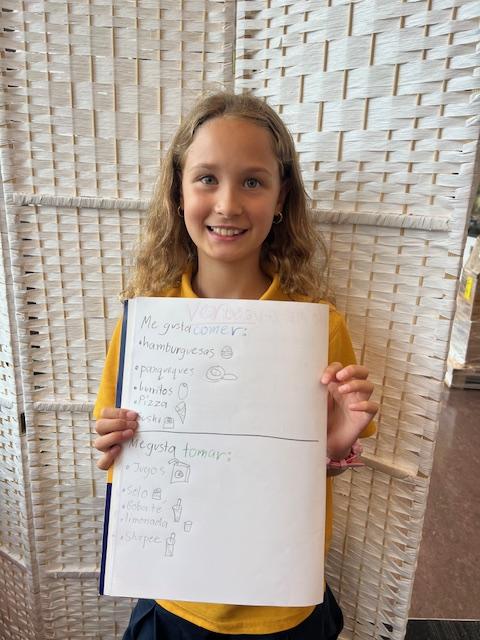 Me gusta comer:
• hamburguesas
• panquques
• burritos
• Pizza
• Sushi
Me gusta tomar:
• Jugos
• Selo
• Boba te
• limonada
• Slurpee